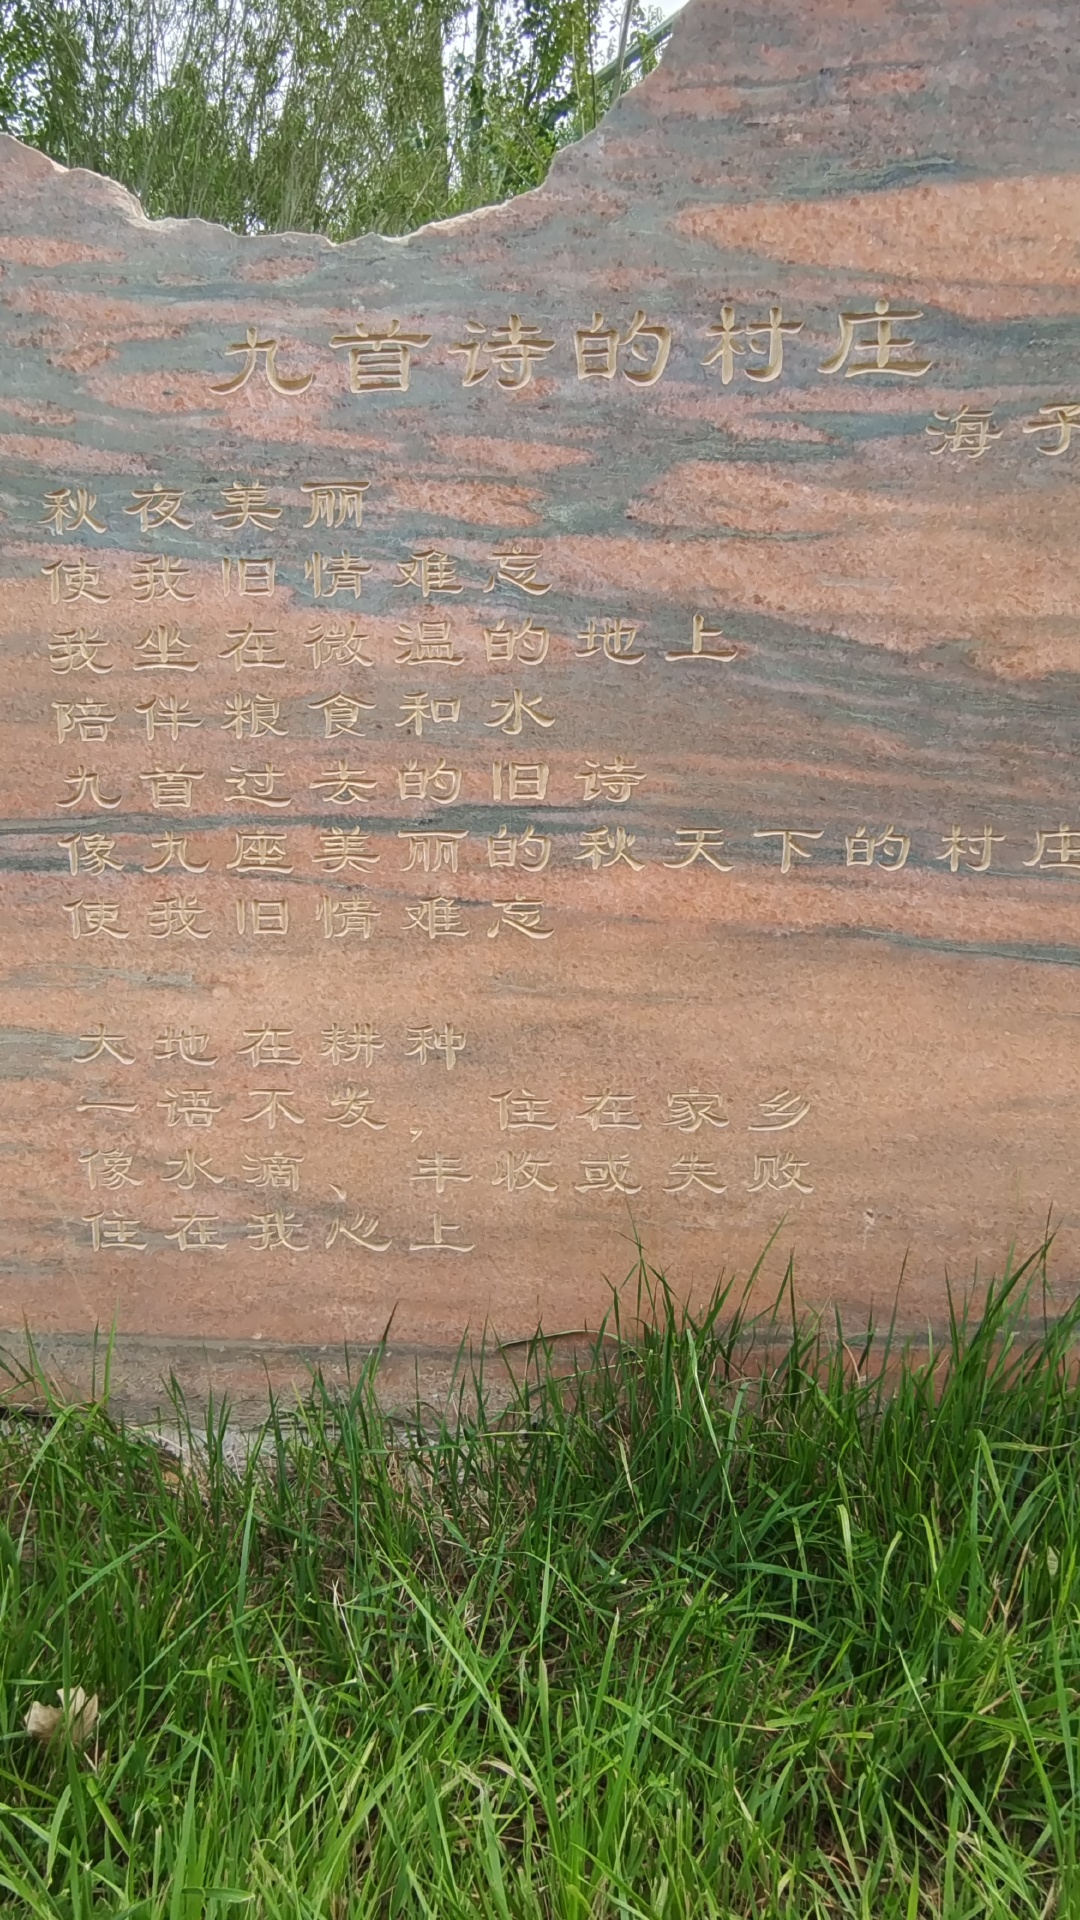 九首诗的村庄
海子
秋夜美丽
使我旧情难忘
我坐在微温的地上
陪伴粮食和水
九首过去的旧诗
像九座美丽的秋天下的村庄
使我旧情难忘
大地在耕种
一语不发，住在家乡
像水滴、丰收或失败
住在我心上